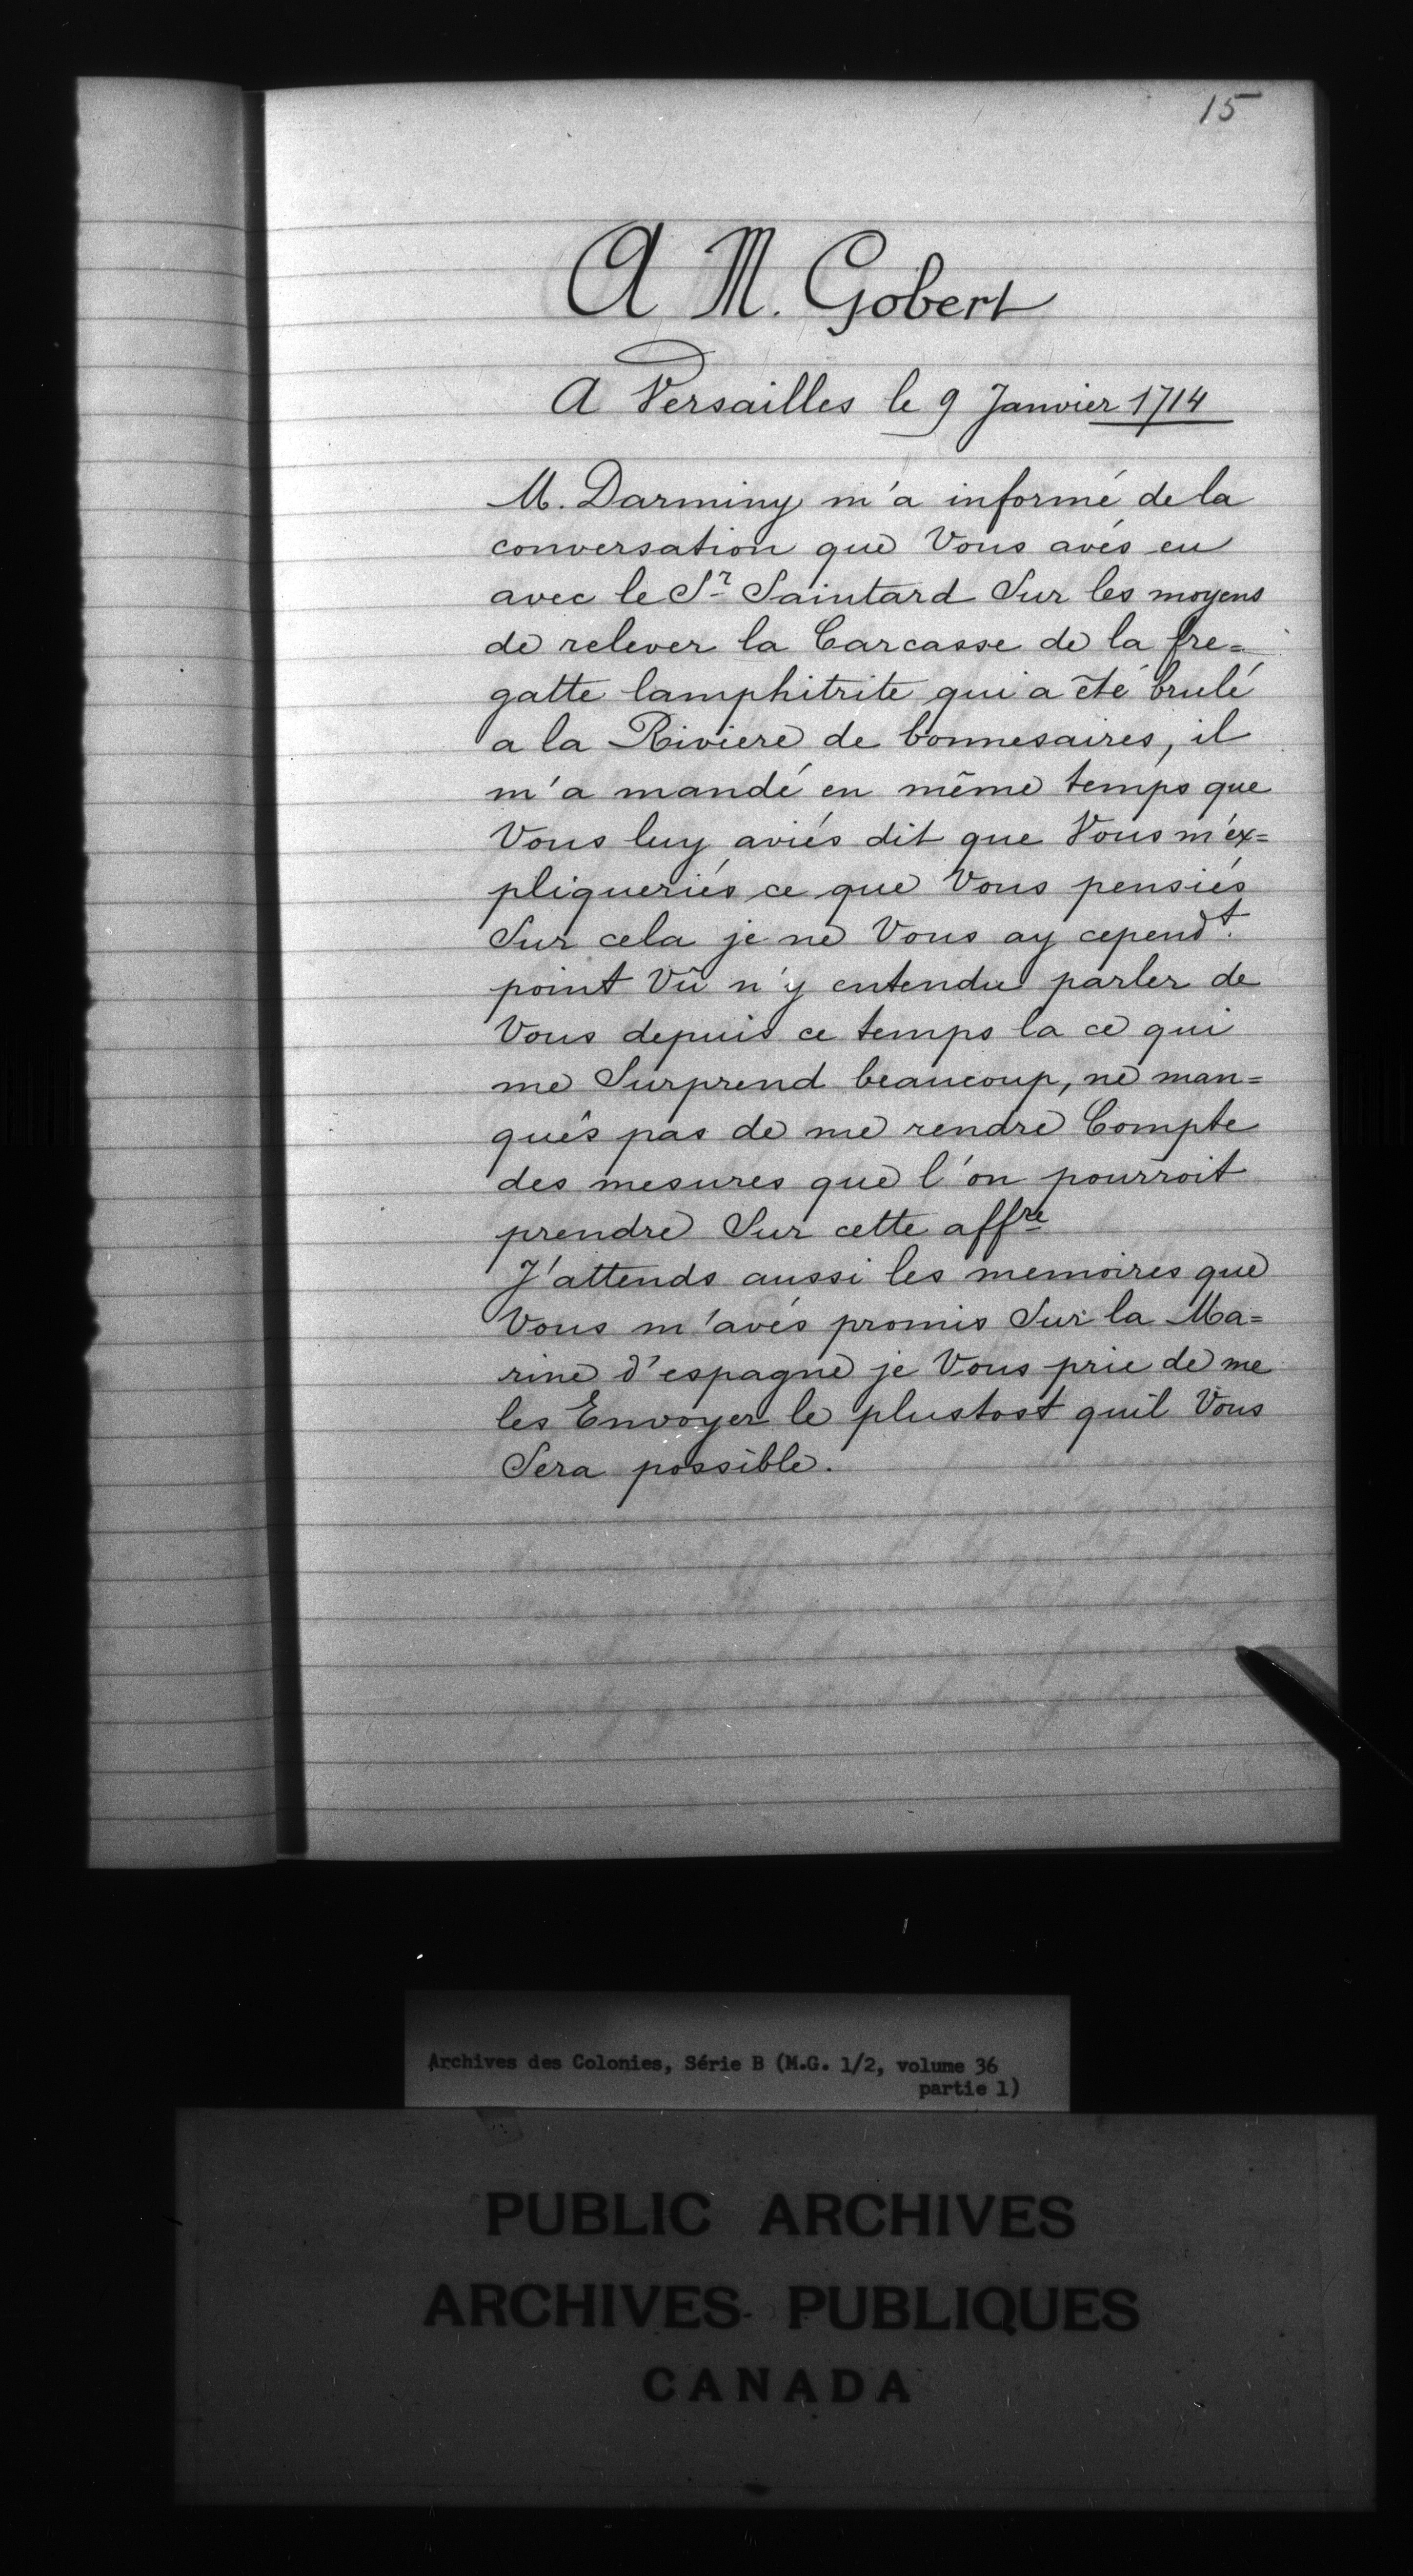 15
A M. Gobert
A Versailles le 9 Janvier 1714
M. Darminy m'a informé de la
conversation que Vous avés eu
avec le Sr Saintard Sur les moyens
de relever la Carcasse de la fre=
gatte lamphitrite qui a été brulé
a la Riviere de bonnesaires, il
m'a mandé en même temps que
Vous luy aviés dit que Vous m'ex=
pliqueriés ce que Vous pensiés
Sur cela je ne Vous ay cependt.
point Vû n'y entendu parler de
Vous depuis ce temps la ce qui
me Surprend beaucoup, ne man=
qués pas de me rendre Compte
des mesures que l'on pourroit
prendre Sur cette affre
J'attends aussi les memoires que
Vous m'avés promis Sur la Ma=
rine d'espagne je Vous prie de me
les Envoyer le plustost quil Vous
Sera possible.
Archives des Colonies, Série B (M.G. 1/2, volume 36
partie 1)
PUBLIC ARCHIVES
ARCHIVES PUBLIQUES
CANADA